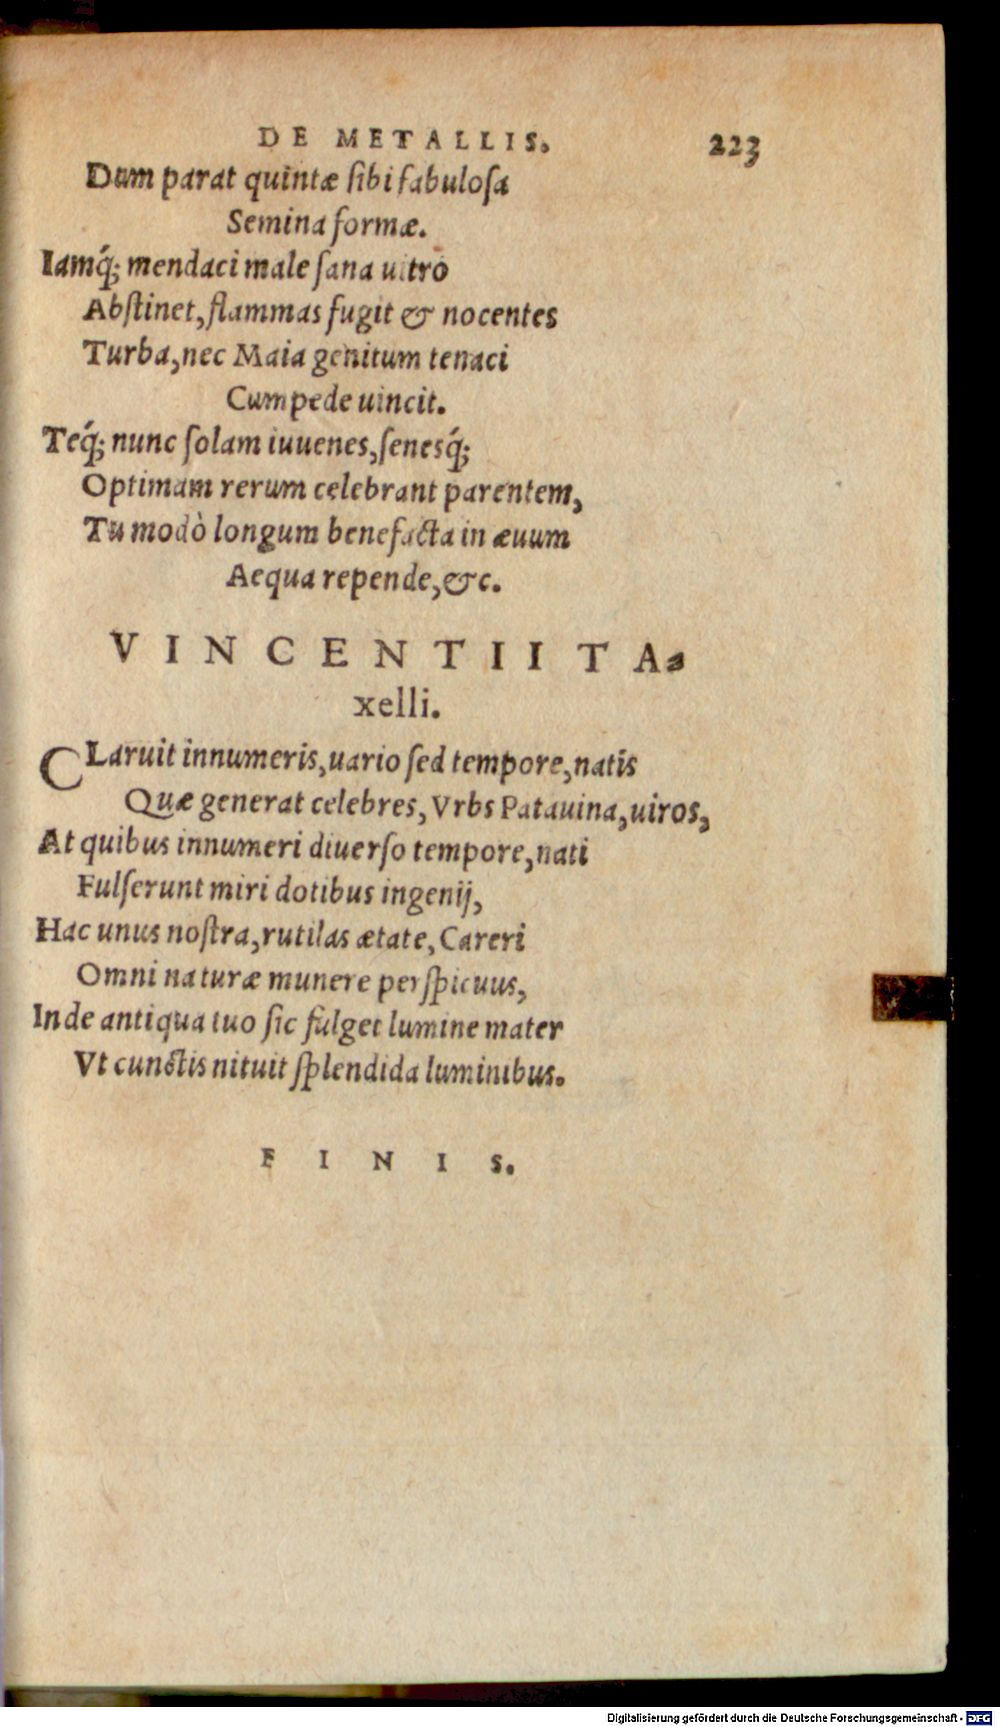 DE METALLIS. 223
Dum parat quintæ ſibi fabuloſa
Semina formæ.
Iamq́; mendaci male ſana uitro
Abſtinet, flammas fugit & nocentes
Turba, nec Maia genitum tenaci
Cumpede uincit.
Teq́; nunc ſolam iuuenes, ſenesq́;
Optimam rerum celebrant parentem,
Tu modò longum benefacta in æuum
Aequa repende, &c.
VINCENTII TA-
xelli.
CLaruit innumeris, uario ſed tempore, natis
Quæ generat celebres, Vrbs Patauina, uiros,
At quibus innumeri diuerſo tempore, nati
Fulſerunt miri dotibus ingenij,
Hac unus noſtra, rutilas ætate, Careri
Omni naturæ munere perſpicuus,
Inde antiqua tuo ſic fulget lumine mater
Vt cunctis nituit ſplendida luminibus.
FINIS.
Digitalisierung gefördert durch die Deutsche Forschungsgemeinschaft - DFG